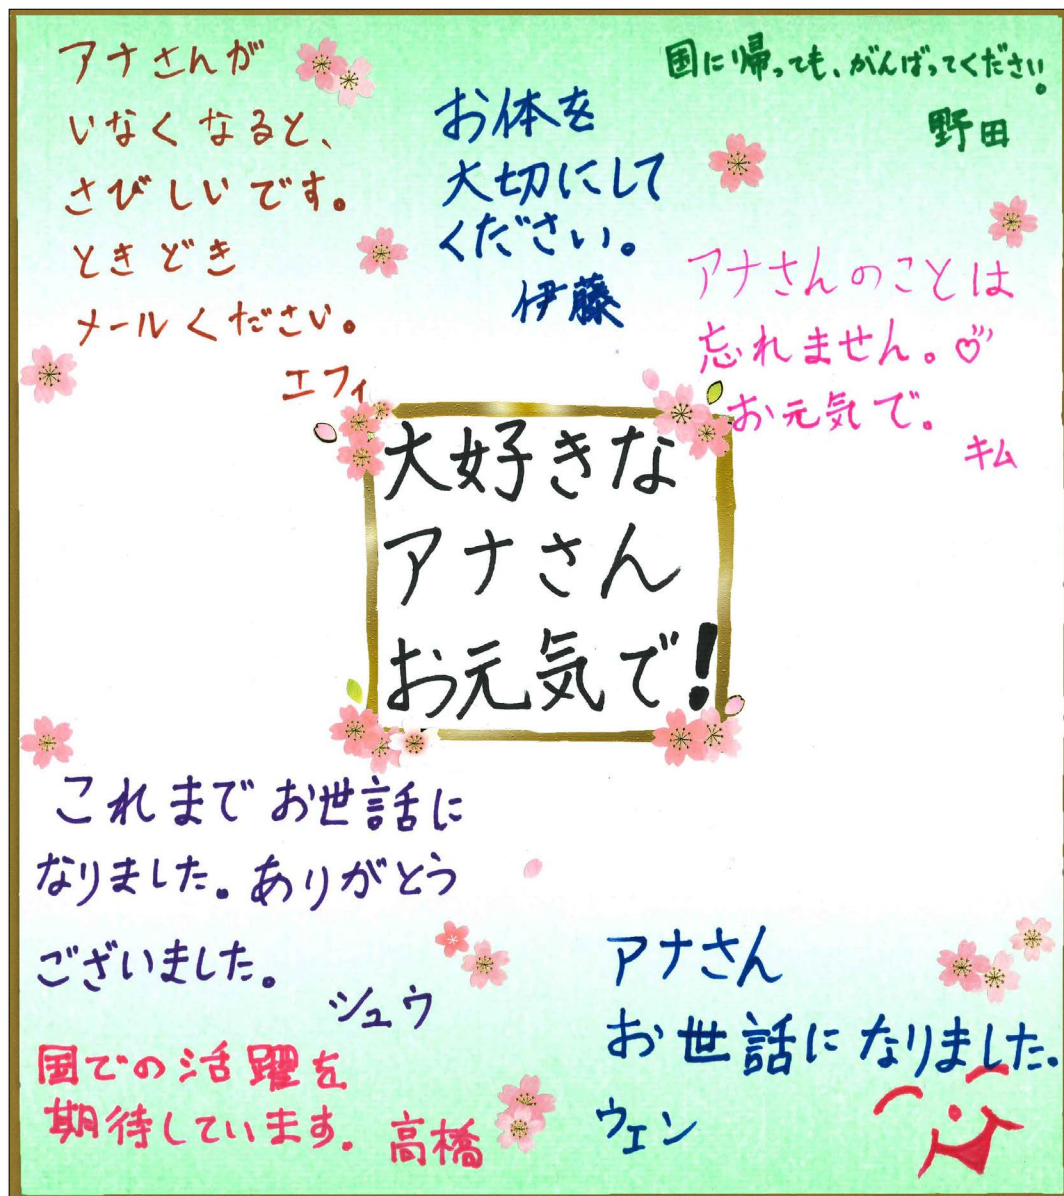 アナさんが
いなくなると、
さびしいです。
ときどき
メールください。
エフィ
お体を
大切にして
ください。
伊藤
国に帰っても、がんばってください。
野田
アナさんのことは
忘れません。♡
お元気で。
キム
大好きな
アナさん
お元気で！
これまでお世話に
なりました。ありがとう
ございました。
シュウ
国での活躍を
期待しています。高橋
アナさん
お世話になりました。
ウェン